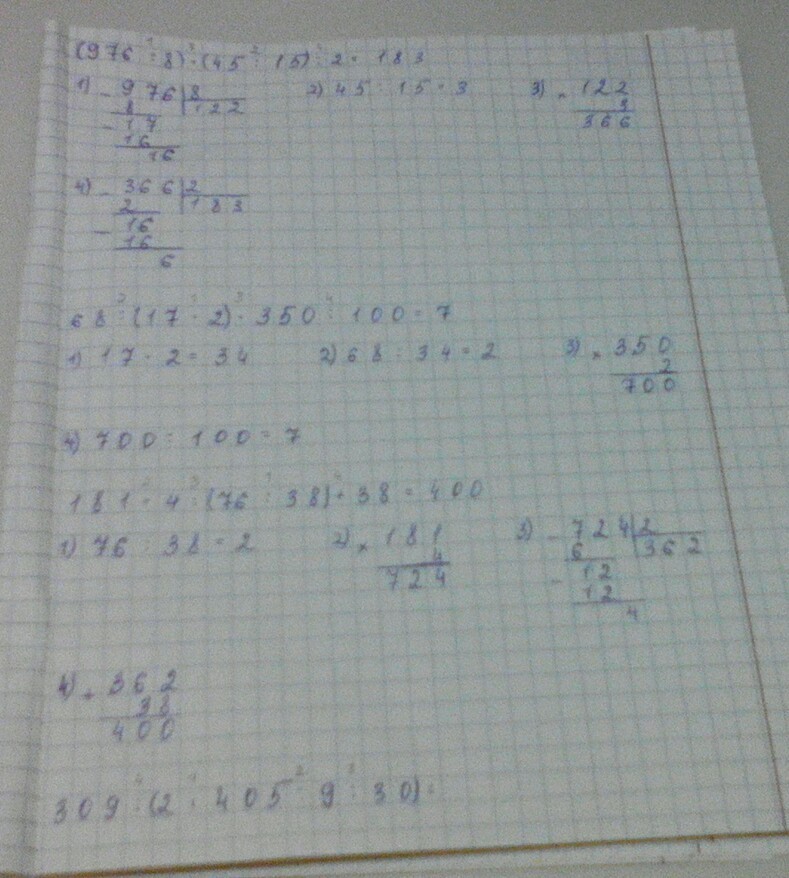 (976 : 8) · (45 : 15) : 2 = 183
1) - 976 | 8 2) 45 : 15 = 3 3) × 122
8 122 3
- 17 366
16
16
4) - 366 | 2
2 183
- 16
16
6
68 : (17 · 2) · 350 : 100 = 7
1) 17 · 2 = 34 2) 68 : 34 = 2 3) × 350
2
700
4) 700 : 100 = 7
181 · 4 : (76 : 38) + 38 = 400
1) 76 : 38 = 2 2) × 181 3) - 724 | 2
4 6 362
724 - 12
12
4
4) + 362
38
400
309 (2 405 9 : 30)